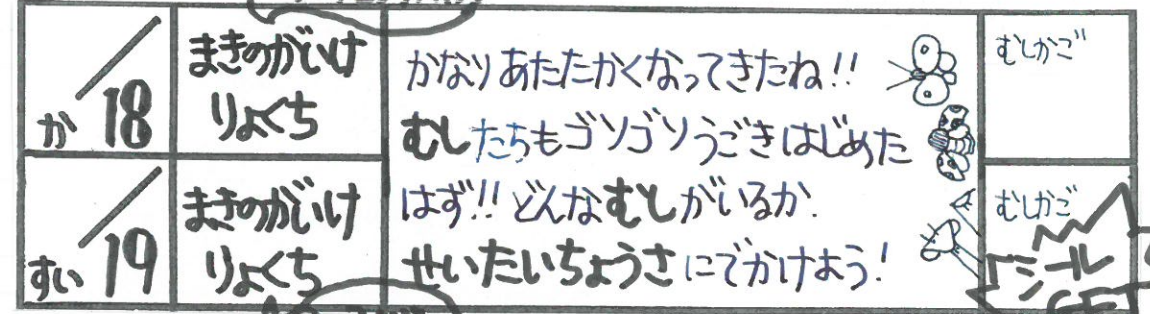 ／18
か
まきのがいけ
りょくち
かなりあたたかくなってきたね!!
むしたちもゴソゴソうごきはじめた
はず!! どんなむしがいるか.
せいたいちょうさにでかけよう!
むしかご
／19
すい
まきのがいけ
りょくち
むしかご
シール